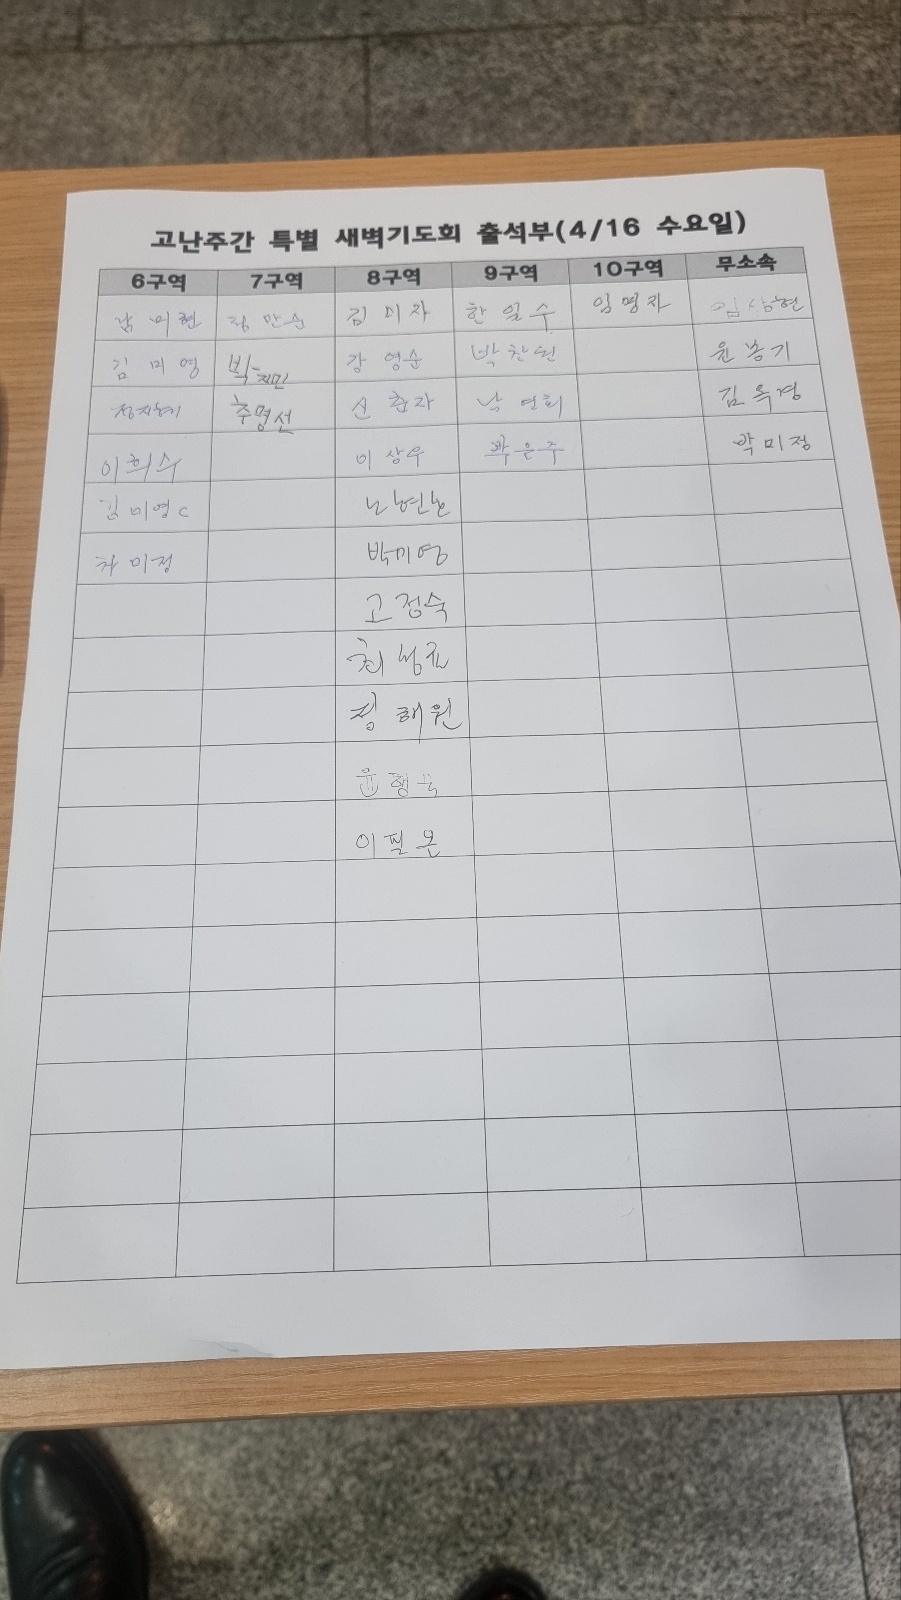 고난주간 특별 새벽기도회 출석부(4/16 수요일)
6구역 7구역 8구역 9구역 10구역 무소속
미현 정만순 김미자 한일수 임명자 임상현
김미영 박지민 강영순 박찬원 윤봉기
정지혜 추명선 신춘자 낙연희 김옥경
이희수 이상우 곽은주 박미정
김미영c 노현논
차미정 박미영
고정숙
최범규
정해원
윤형묵
이필온